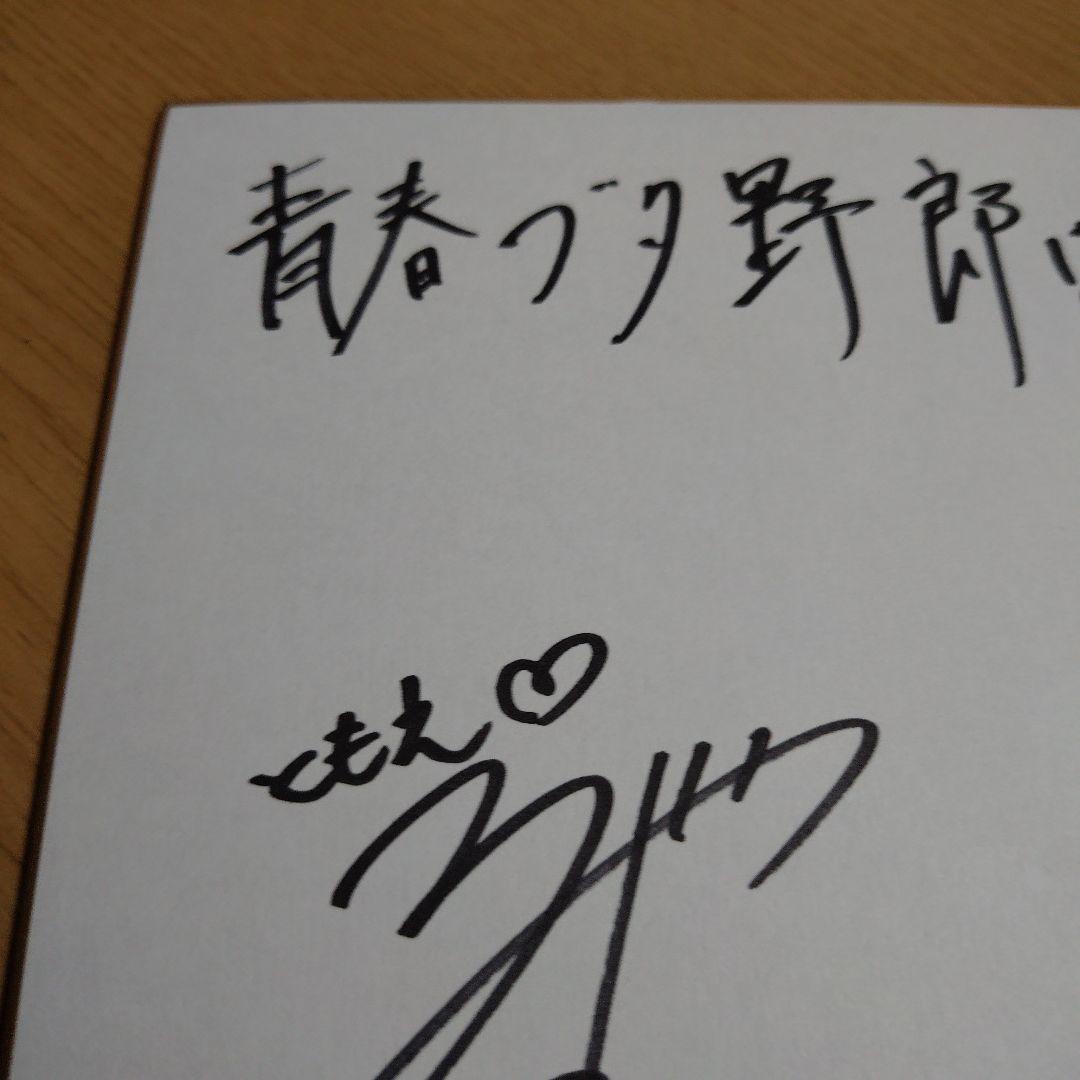 青春ブタ野郎は
ともえ♡